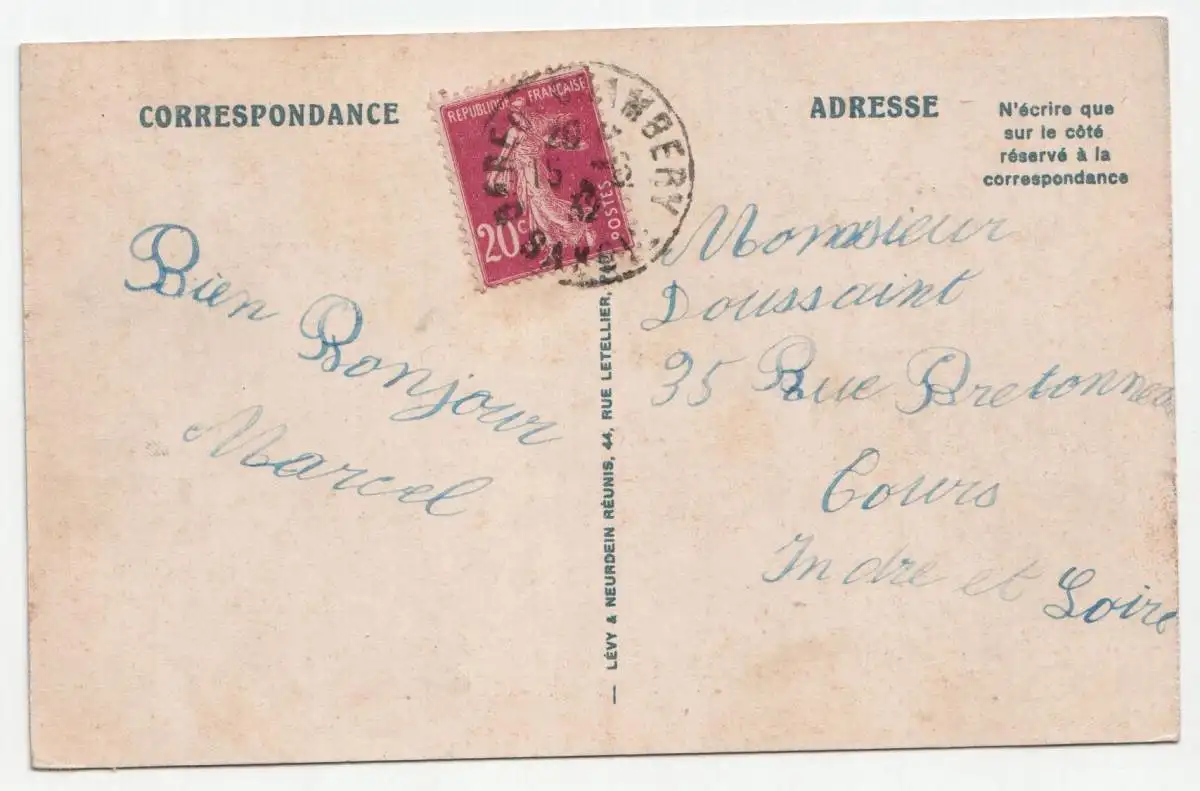 CORRESPONDANCE
ADRESSE
N'écrire que
sur le côté
réservé à la
correspondance
RÉPUBLIQUE FRANÇAISE
POSTES
20c
Bien Bonjour
Marcel
Monsieur
Doussaint
35 Rue Bretonneau
Tours
Indre et Loire
— LÉVY & NEURDEIN RÉUNIS, 44, RUE LETELLIER,